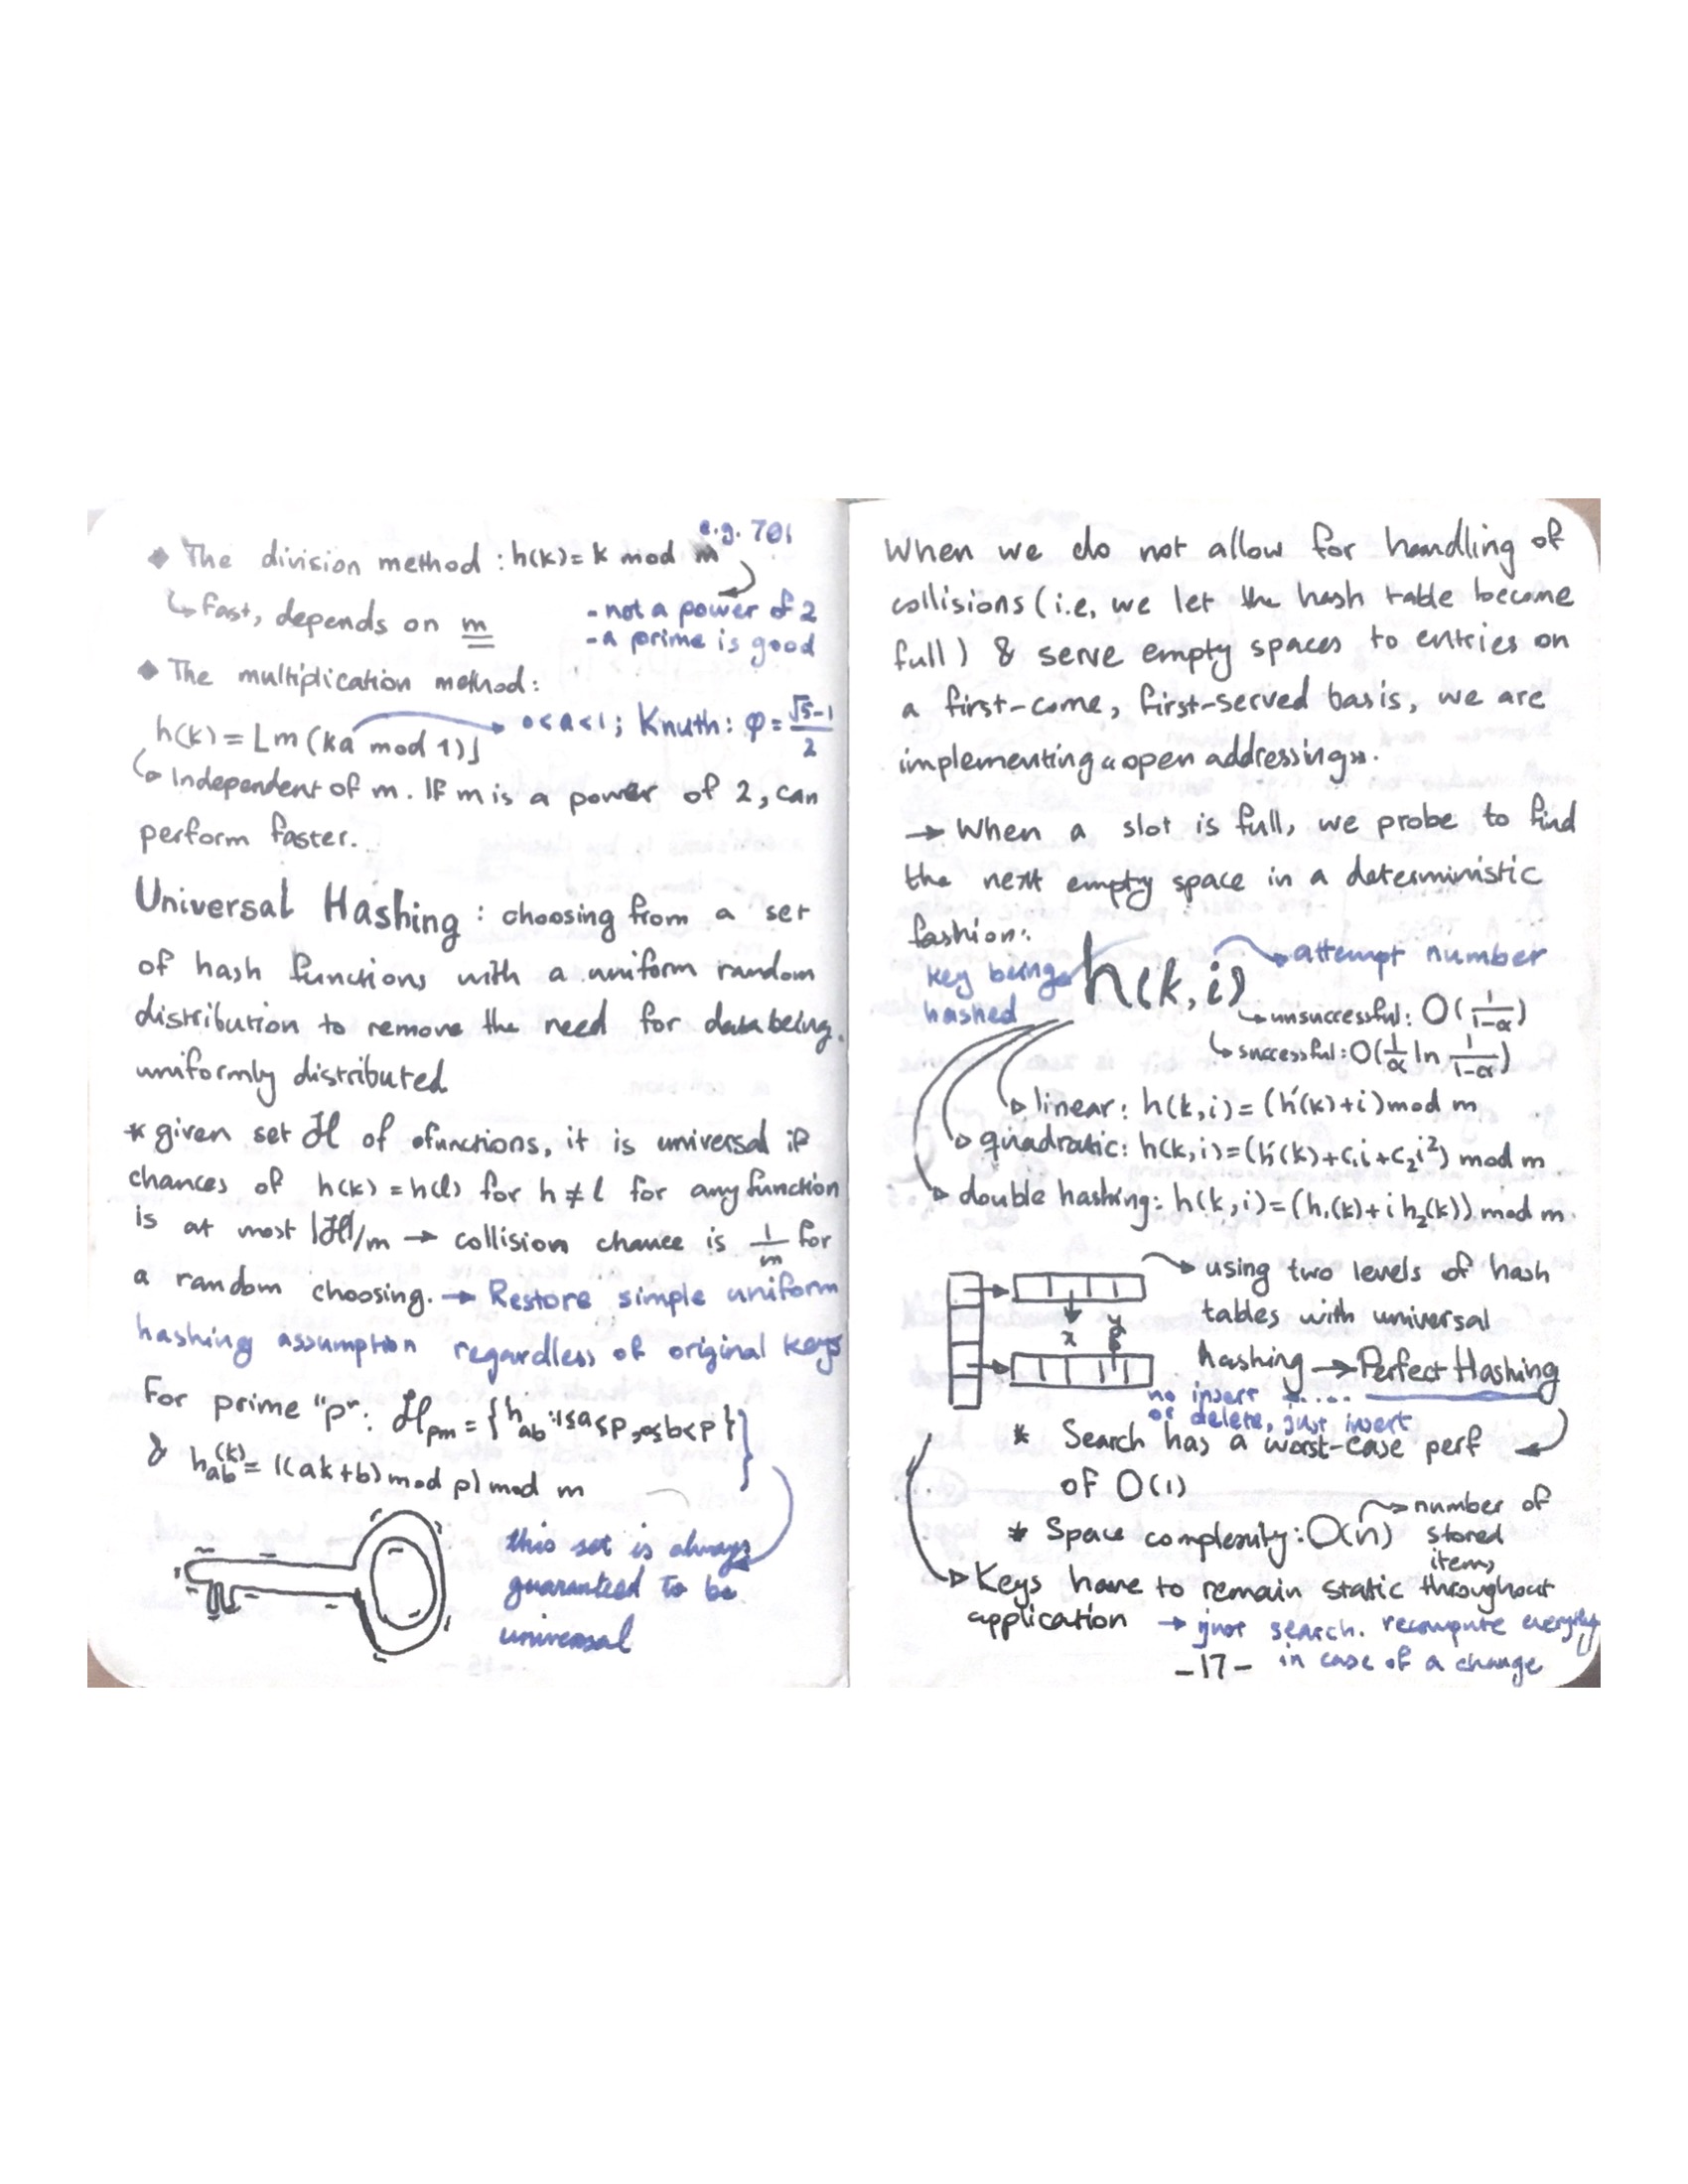 e.g. 701
◆ The division method : h(k) = k mod m
↳ fast, depends on m
- not a power of 2
- a prime is good
◆ The multiplication method:
h(k) = ⌊m(ka mod 1)⌋ → 0<a<1; Knuth: φ = (√5-1)/2
↳ Independent of m. If m is a power of 2, can
perform faster.
Universal Hashing : choosing from a set
of hash functions with a uniform random
distribution to remove the need for data being
uniformly distributed
* given set ℋ of functions, it is universal if
chances of h(k) = h(l) for h ≠ l for any function
is at most |ℋ|/m → collision chance is 1/m for
a random choosing. → Restore simple uniform
hashing assumption regardless of original keys
For prime "p": ℋpm = {hab : 1≤a<p, 0≤b<p}
& hab(k) = ((ak+b) mod p) mod m
this set is always
guaranteed to be
universal
When we do not allow for handling of
collisions (i.e. we let the hash table become
full) & serve empty spaces to entries on
a first-come, first-served basis, we are
implementing «open addressing».
→ When a slot is full, we probe to find
the next empty space in a deterministic
fashion:
key being
hashed
h(k, i)
attempt number
↳ unsuccessful: O(1/(1-α))
↳ successful: O(1/α ln 1/(1-α))
linear: h(k,i) = (h'(k)+i) mod m
quadratic: h(k,i) = (h'(k)+c₁i+c₂i²) mod m
double hashing: h(k,i) = (h₁(k)+i h₂(k)) mod m
x
y
using two levels of hash
tables with universal
hashing → Perfect Hashing
no insert
or delete, just insert
* Search has a worst-case perf
of O(1)
* Space complexity: O(n) → number of
stored
items
Keys have to remain static throughout
application → just search. recompute everything
in case of a change
-17-